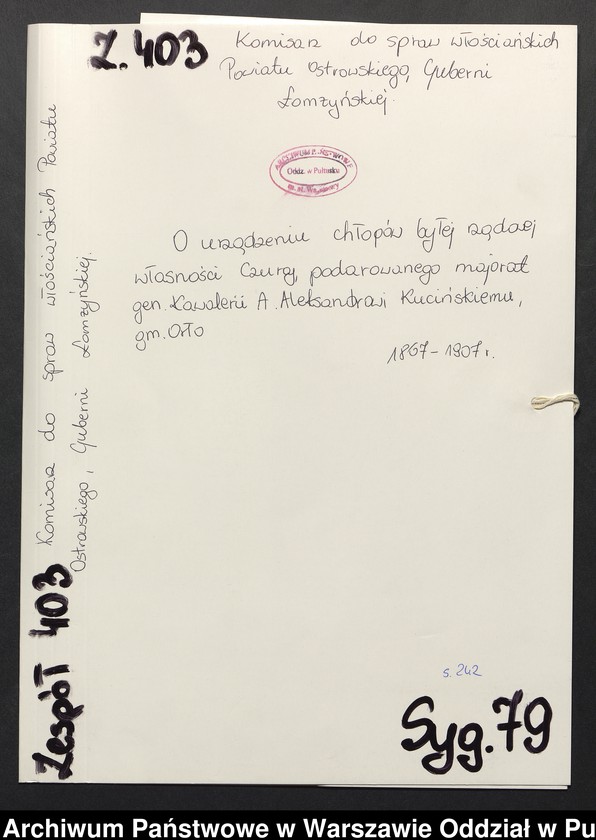 Z. 403
Komisarz do spraw włościańskich
Powiatu Ostrowskiego, Guberni
Łomżyńskiej.
ARCHIWUM PAŃSTWOWE
Oddz. w Pułtusku
m. st. Warszawy
O urządzeniu chłopów byłej rządzej
własności Czuraj, podarowanego majorat
gen. Kawalerii A. Aleksandrowi Kucińskiemu,
gm. Orło
1867-1907 r.
s. 242
Syg. 79
Zespół 403 Komisarz do spraw włościańskich Powiatu
Ostrowskiego, Guberni Łomżyńskiej.
Archiwum Państwowe w Warszawie Oddział w Pu